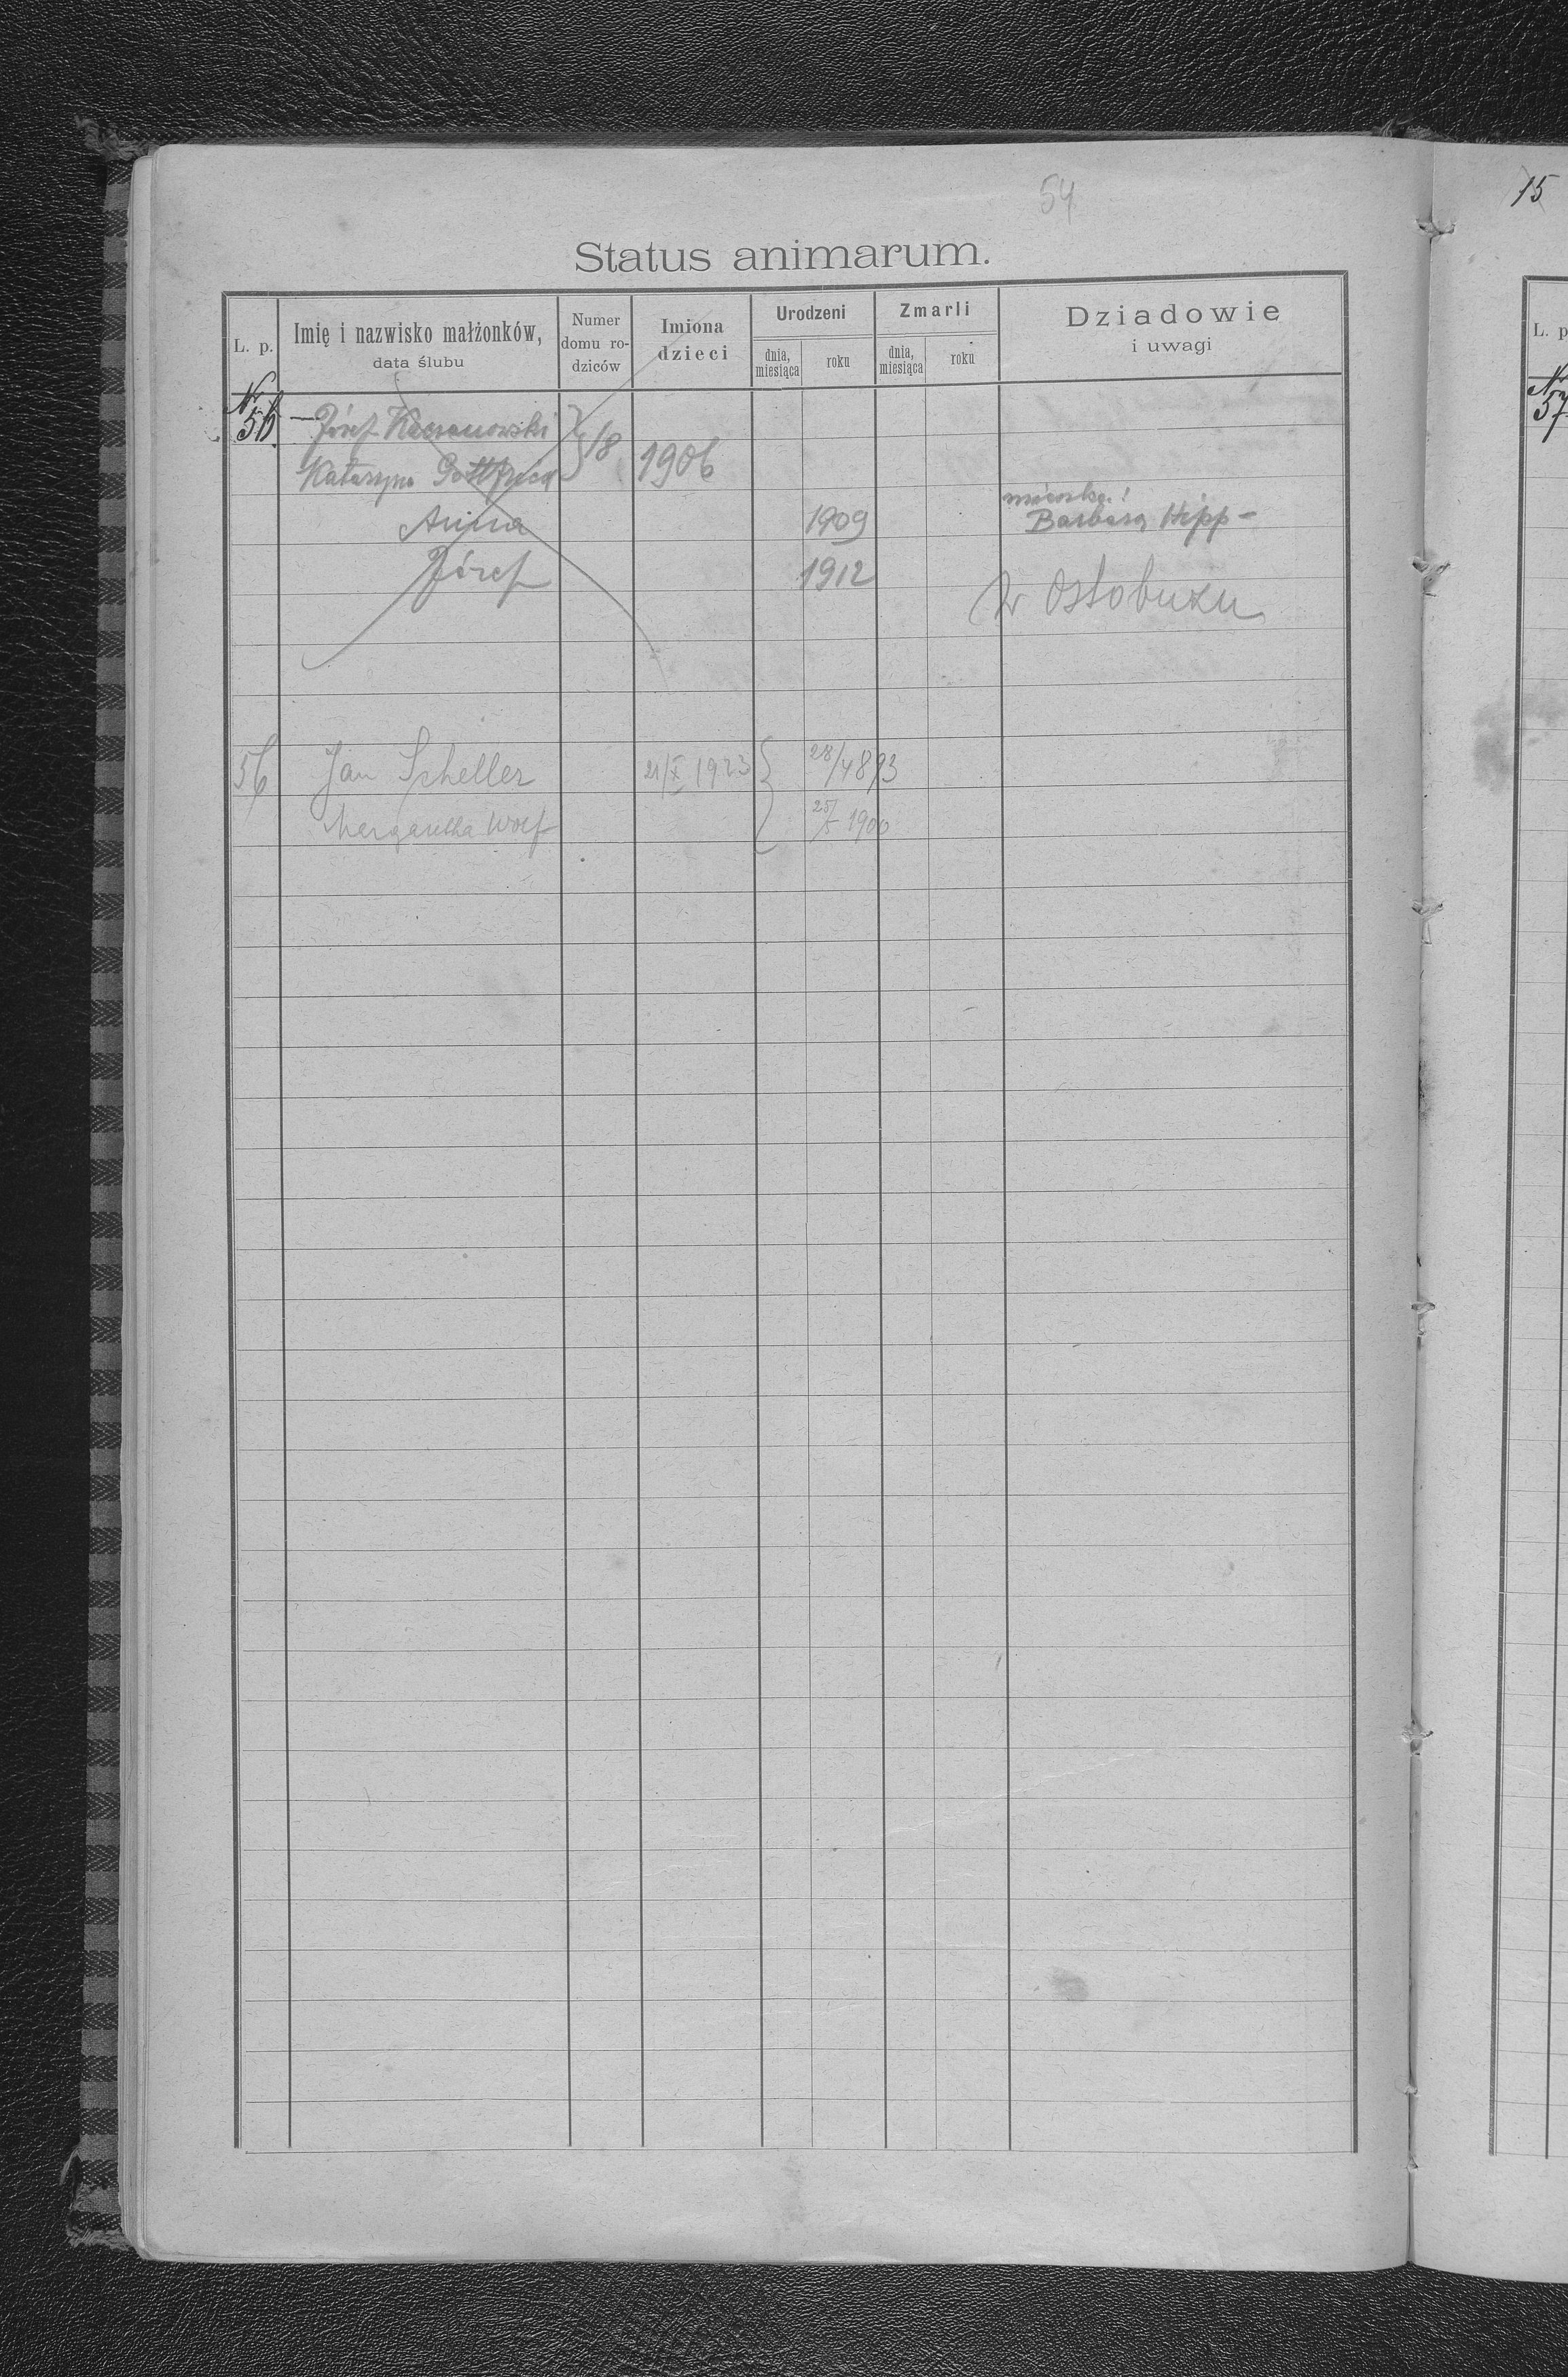 54
15
Status animarum.
L. p.
Imię i nazwisko małżonków,
data ślubu
Numer
domu ro-
dziców
Imiona
dzieci
Urodzeni
dnia,
miesiąca
roku
Zmarli
dnia,
miesiąca
roku
Dziadowie
i uwagi
L. p
Nr
56
Józef
18
Katarzyna
1906
Anna 1909
Barbara Hipp -
Józef 1912
w Ostobużu
56 Jan Scheller 21/X 1923 28/4 893
Margaretha Wolf 25/5 1900
Nr
57